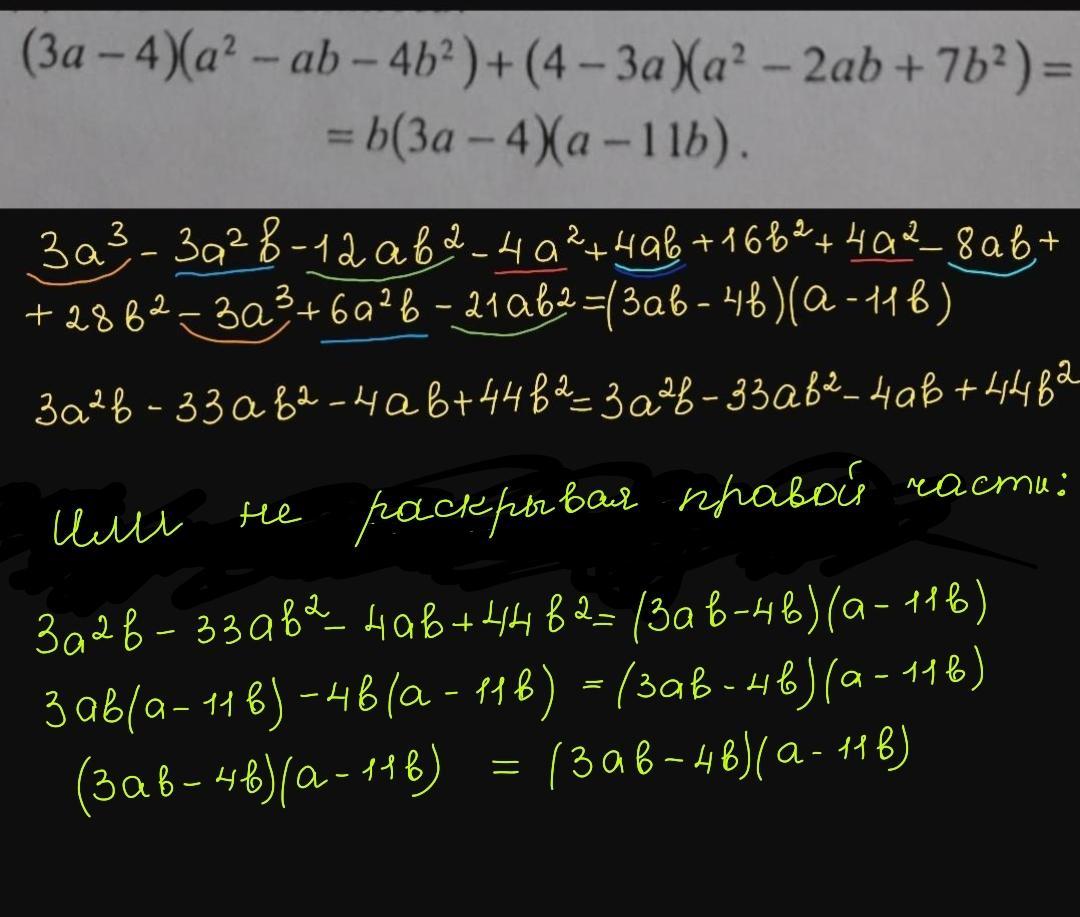 (3a – 4)(a² – ab – 4b²) + (4 – 3a)(a² – 2ab + 7b²) =
= b(3a – 4)(a – 11b).
3a³ - 3a²b - 12ab² - 4a² + 4ab + 16b² + 4a² - 8ab +
+ 28b² - 3a³ + 6a²b - 21ab² = (3ab - 4b)(a - 11b)
3a²b - 33ab² - 4ab + 44b² = 3a²b - 33ab² - 4ab + 44b²
Или не раскрывая правой части:
3a²b - 33ab² - 4ab + 44b² = (3ab - 4b)(a - 11b)
3ab(a - 11b) - 4b(a - 11b) = (3ab - 4b)(a - 11b)
(3ab - 4b)(a - 11b) = (3ab - 4b)(a - 11b)